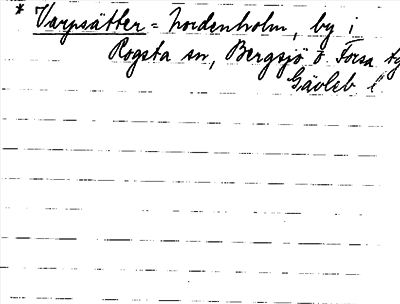 * Varpsätter = Nordenholm, by i
Rogsta sn, Bergsjö o. Forsa tg
Gävleb l